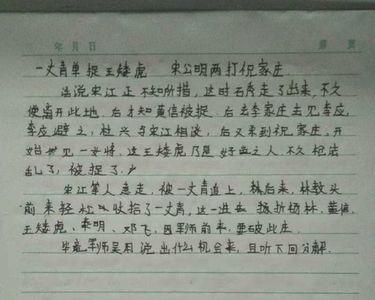 年 月 日
一丈青单捉王矮虎 宋公明两打祝家庄
话说宋江正不知所措，这时石秀走了出来，不久
便离开此地，后才知黄信被捉，后去李家庄去见李应，
李应避之，杜兴与宋江相谈，后又来到祝家庄，开
始 见一女将，这王矮虎乃是好色之人，不久枪法
乱了，被捉了。
宋江等人急走，被一丈青追上，林后来，林教头
前来轻松收拾了一丈青，这一进去 损折杨林，黄信，
王矮虎，秦明，邓飞，因军师前来，要破此庄，
毕竟军师吴用说出什么机会来，且听下回分解。